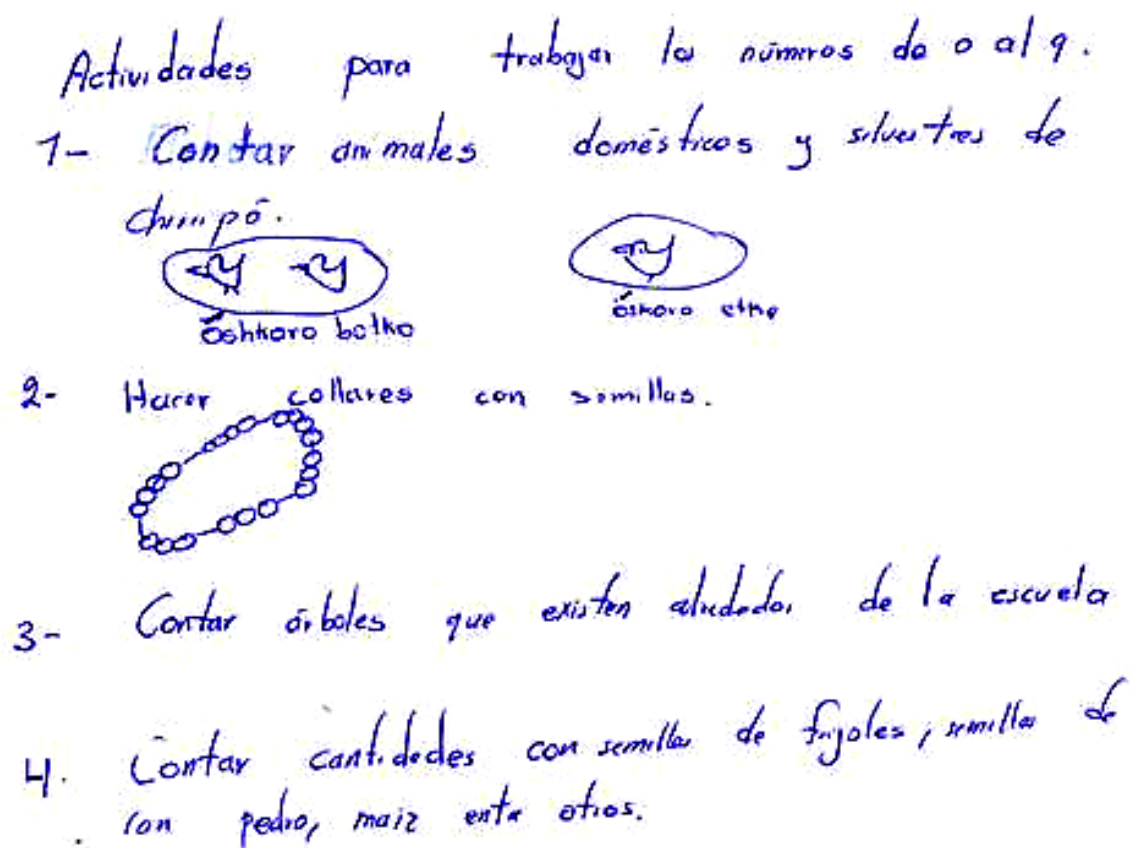 Actividades para trabajar los números de 0 al 9.
1- Contar animales domésticos y silvestres de
chumpó.
Öshkoro botko
öskoro etke
2- Hacer collares con semillas.
3- Contar árboles que existen alrededor de la escuela
4. Contar cantidades con semillas de frijoles, semillas de
san pedro, maiz entre otros.